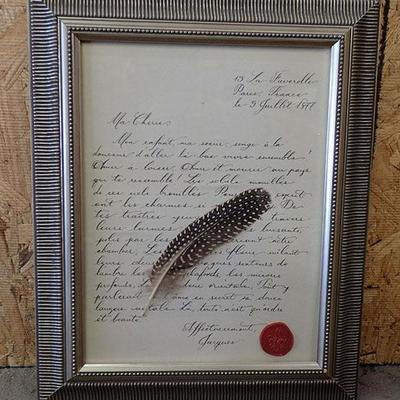 13 La Faverolle
Paris, France
le 9 Juillet 1877
Ma Cherie,
Mon enfant, ma soeur, songe à la
douceur d'aller là-bas vivre ensemble!
Aimer à loisir, Aimer et mourir au pays
qui te ressemble! Les soleils mouillés
de ces ciels brouillés Pour esprit
ont les charmes si De
tes traîtres yeux travers
leurs larmes luisants,
polis par les notre
chambre, Les fleurs mêlant
leurs odeurs vagues senteurs de
l'ambre Les plafonds, les miroirs
profonds, la orientale, Tout y
parlerait l'âme en secret sa douce
langue natale. Là, tout n'est qu'ordre
et beauté.
Affectueusement,
Jacques